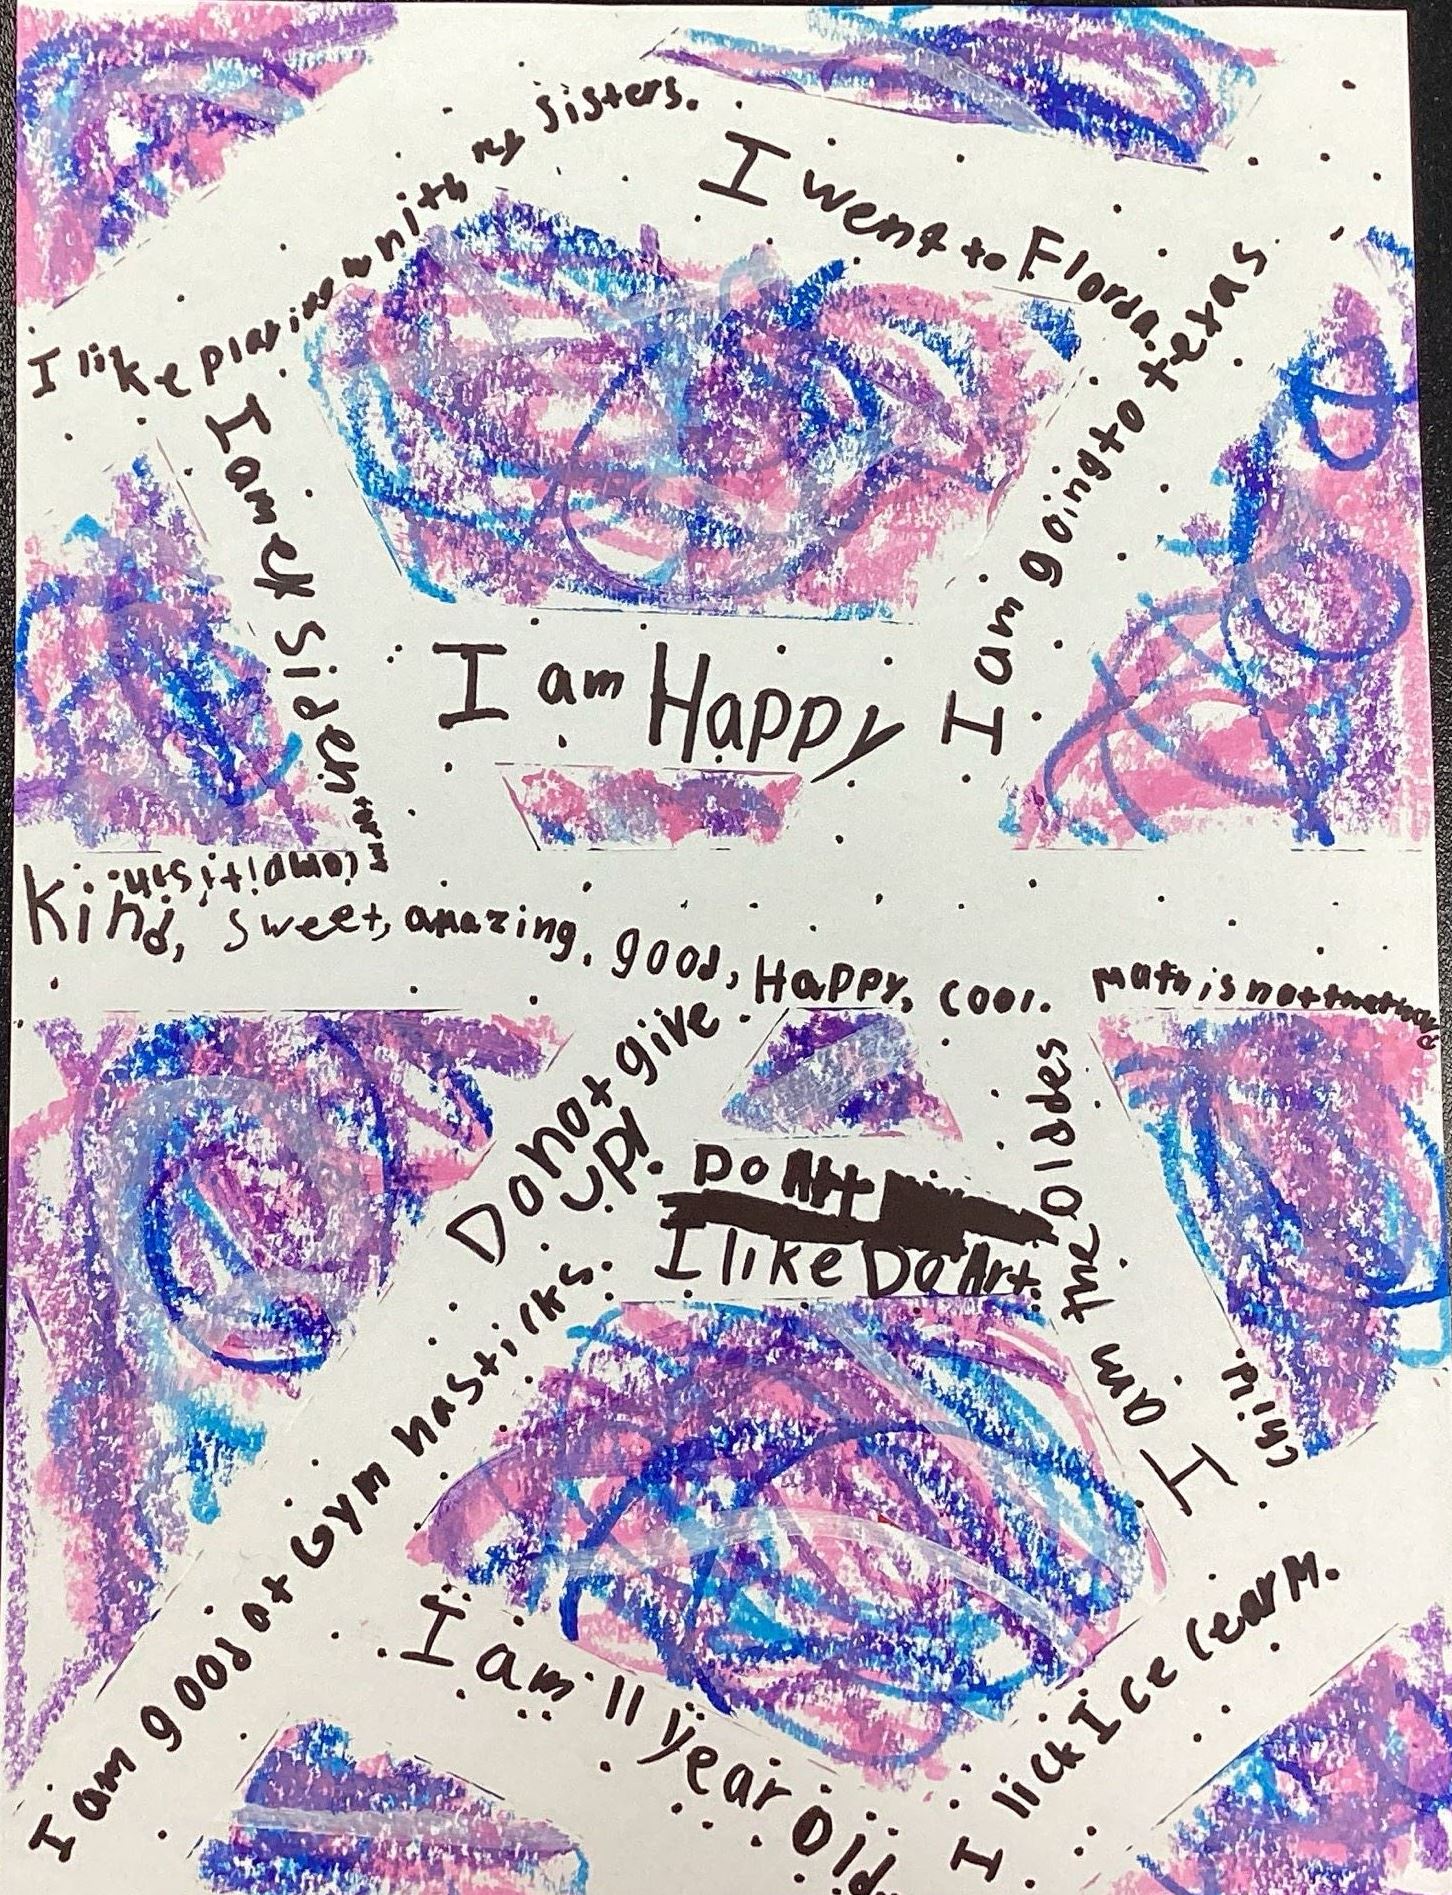 I like playing with my sisters.
I went to Florda.
I am going to texas.
I am
I am Happy
Kind, sweet, amazing, good, Happy, cool.
math is not
Do not give
up!
Do Art
I like Do Art.
I am the oldes
chid.
I am good at Gym nasticks.
I am 11 year old
I lick Ice cearm.